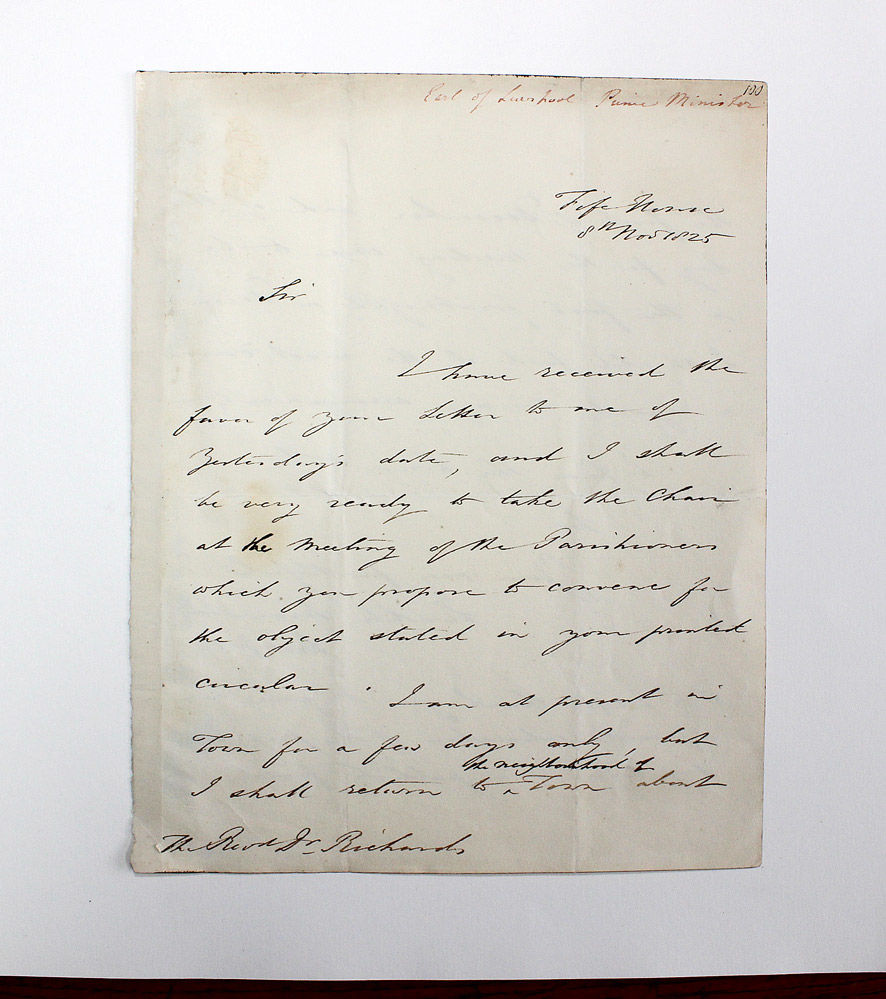 100
Earl of Liverpool Prime Minister
Fife House
8th Nov 1825
Sir
I have received the
favor of your Letter to me of
Yesterday's date, and I shall
be very ready to take the Chair
at the Meeting of the Parishioners
which you propose to convene for
the object stated in your printed
circular. I am at present in
Town for a few days only, but
the neighbourhood of
I shall return to ^ Town about
The Revd Dr Richards